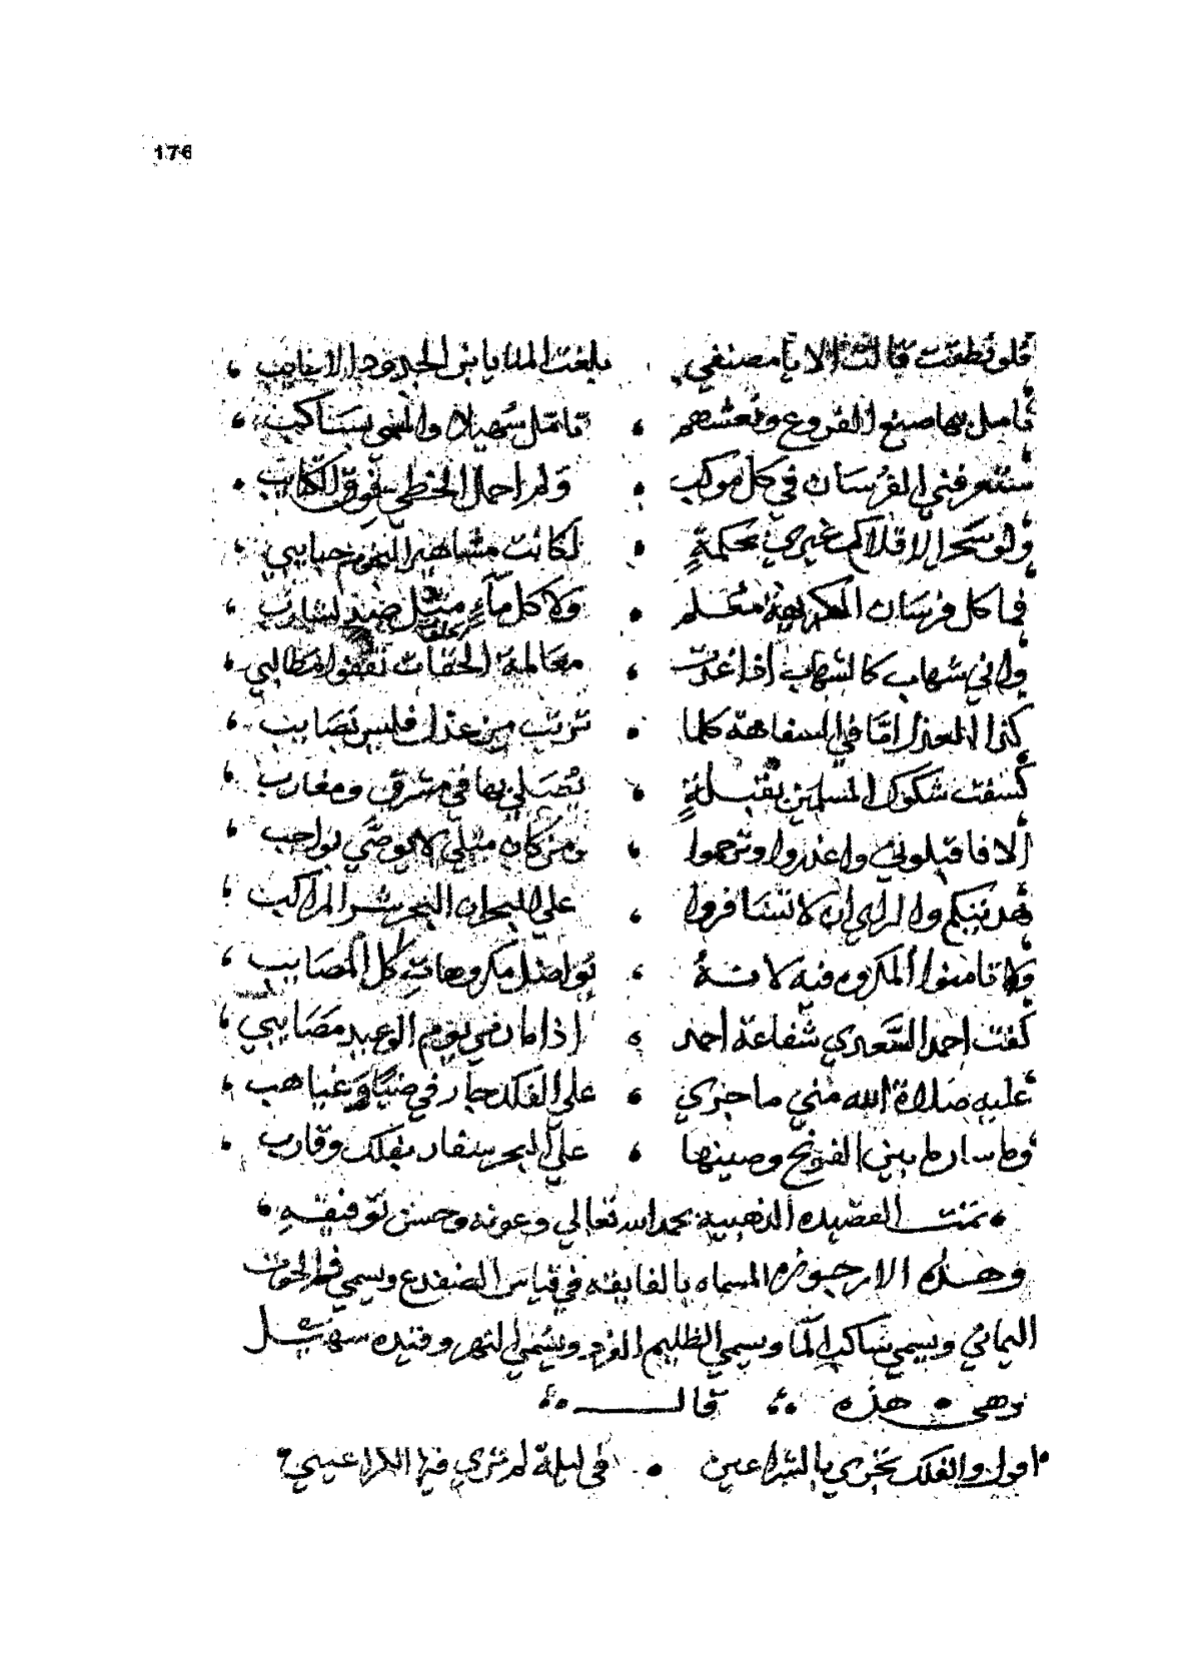 176
فلو نطقت قالت الا يا مصنفي بلغت المنايا بن الجدود الاغايب
تامل بها صنع الفروع ونعشهم قامثل سهيلا والسهى بسناكب
ستعرفني الفرسان في كل موكب ولم احمل الخطي فوق الكتايب
ولو سخر الاقلام غيري بحكمة لكانت مشاهير النجوم حبايبي
فما كل فرسان الكريهة معلم ولا كل ماء مثل صيد لشارب
واني شهاب كالشهاب اذا غدت معالمة الحقات تقفوا مطالبي
كثرا المعذل امّا في السفاهة كلما تربّت من عذل فليس بصايب
كسفت شكوك المسلمين بقبلة يُصَلي بها في مشرق ومغارب
الا فاقبلوني واعذروا وترحموا ومن كان مثلي لا يوصّي بواجب
فهديتكم والراي ان لا تسافروا على البحر ان البحر شر المراكب
ولا تامنوا المكروه فيه لانه نواصل مكروهات كل المصايب
كفت احمد السعدي شفاعة احمد اذا ما دهي يوم الوعيد مصايبي
عليه صلاة الله مني ما جري على الفلك جار في ضيا وغياهب
وما سار ما بين الفرنج وصينها على البحر سفار بفلك وقارب
تمت القصيده الذهبية بحمد الله تعالى وعونه وحسن توفيقه
وهذه الارجوزه المسماه بالفايقه في قياس الضفدع ويسمي فم الحوت
اليماني ويسمي ساكب الما ويسمي الظليم الفرد ويسمى النهر وقيده سهيل
وهي هذه قال
اقول والفلك تجري بالشراعين في ليلة لم تري فيها الكرا عيني